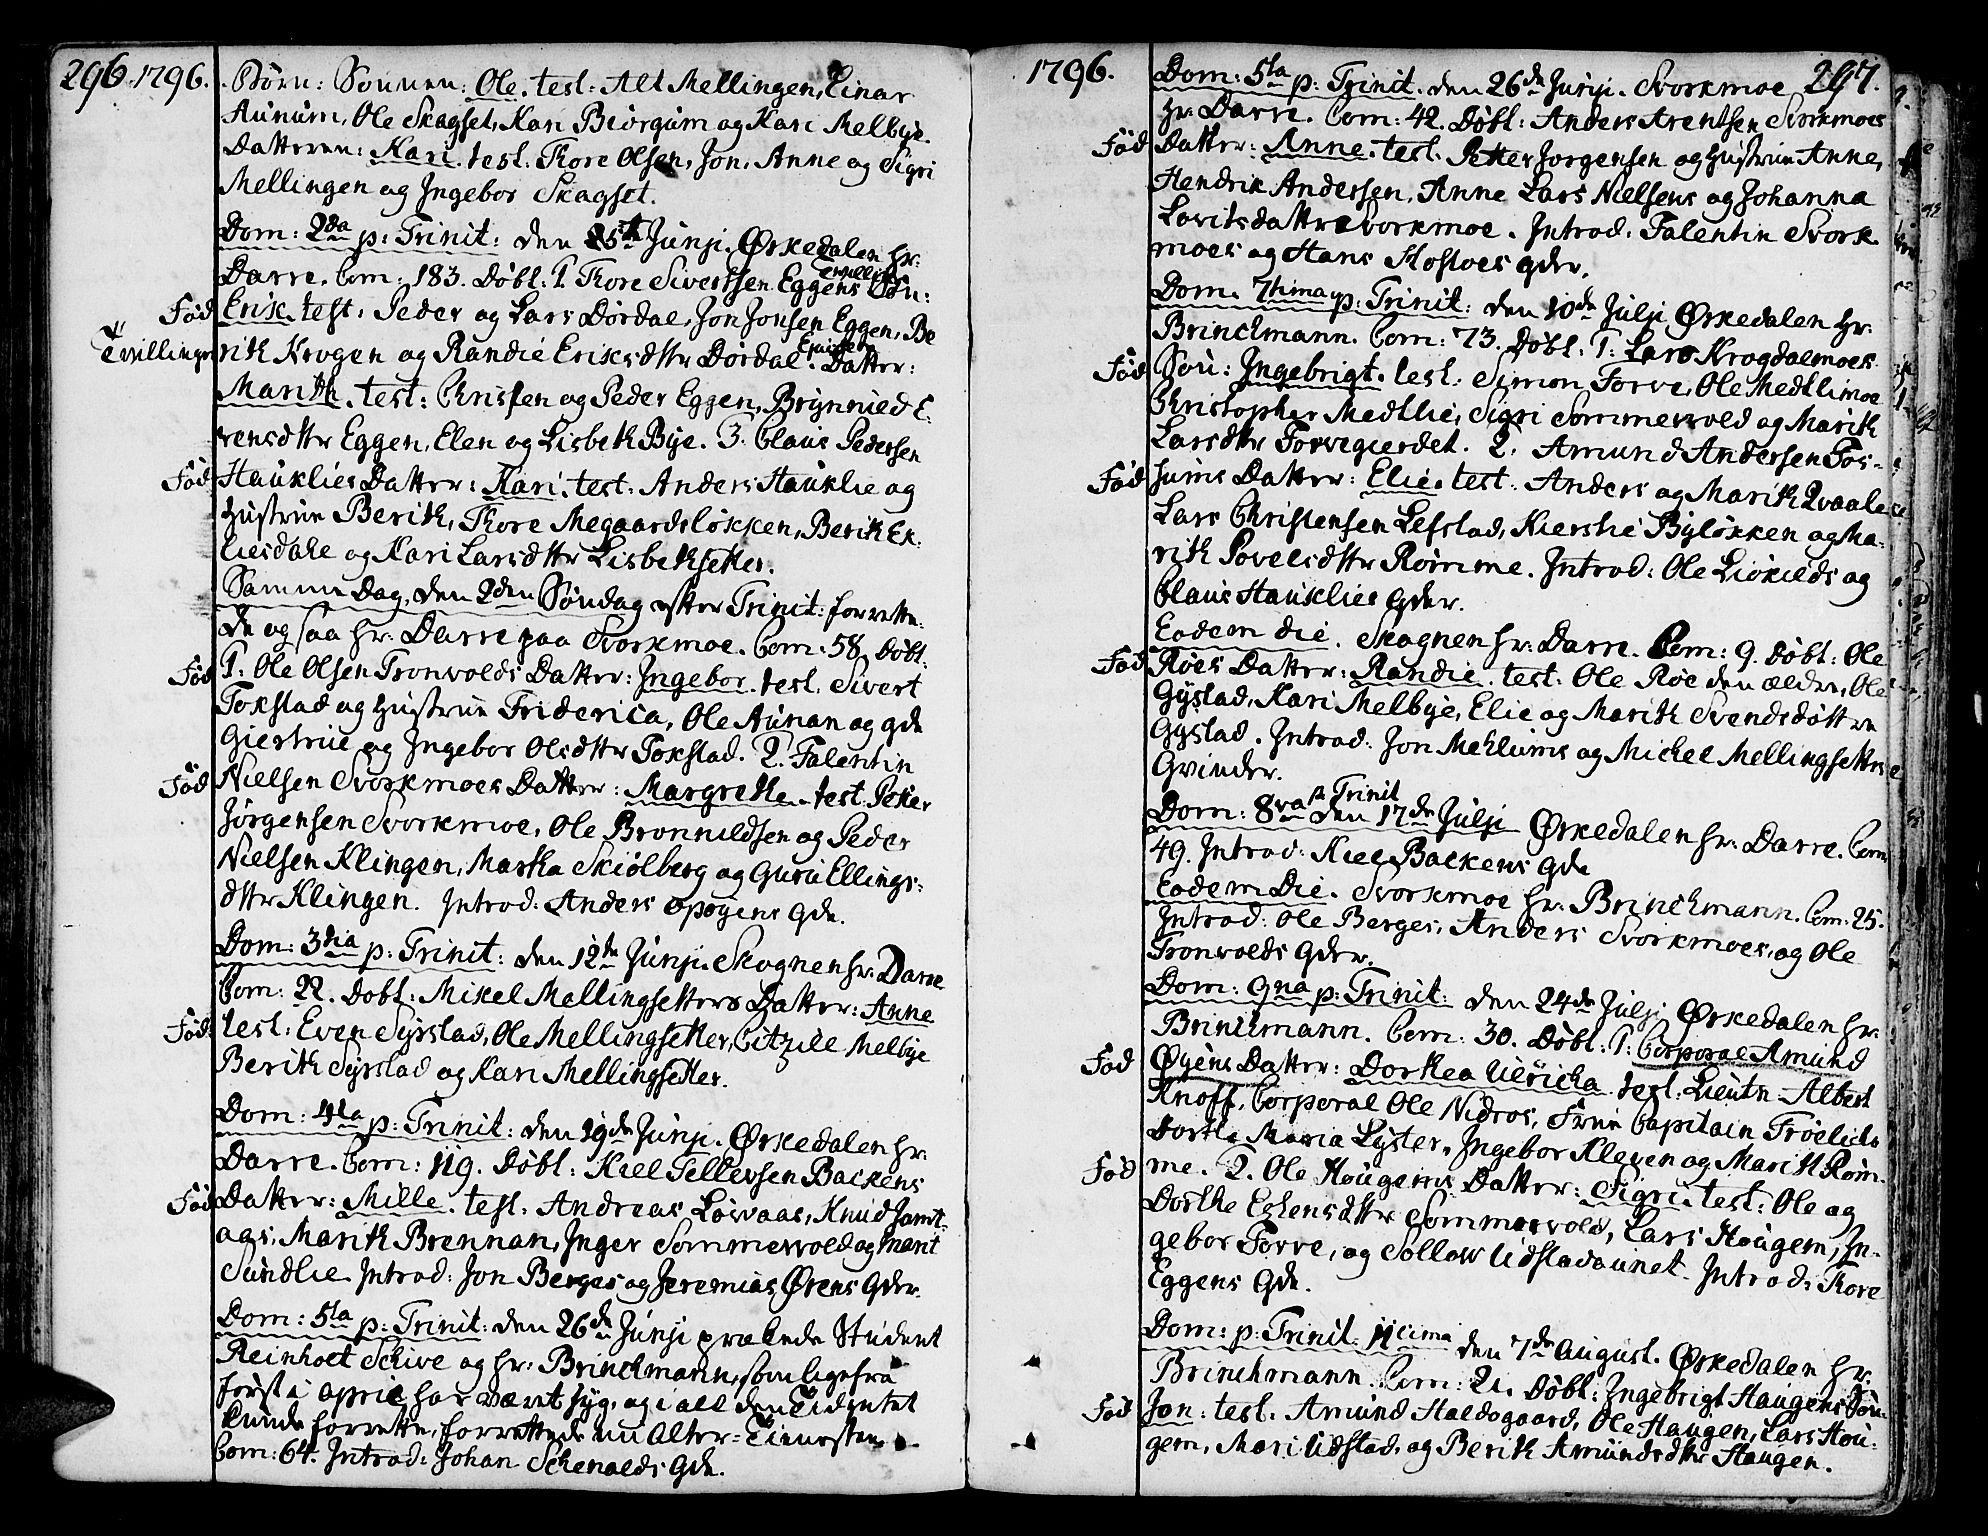 296. 1796.
Børn: Sønnen: Ole. test: Alt Mellingen, Einar
Aunum, Ole Skagset, Kari Biørgum og Kari Melbye.
Datteren: Kari. test: Thore Olsen, Jon, Anne og Sigri
Mellingen og Ingebor Skagset.
Dom: 2da p: Trinit: den 5te Junji. Ørkedalen hr:
Darre. Com: 183. Døbt: 1. Thore Sivertsen Eggens tvilling Søn:
Fød Erik. test: Peder og Lars Dørdal, Jon Jonsen Eggen, Be
Tvillinger rith Krogen og Randie Eriksdttr Dørdal. Datter:
Marith. test: Christen og Peder Eggen, Brynnied E.
rensdttr Eggen, Elen og Lisbeth Bye. 3. Claus Pedersen
Fød Hauklies Datter: Kari. test: Anders Hauklie og
Hustrue Berith, Thore Megaardsløkken, Berith Ek
liesdahl og Kari Larsdttr Lisbethsetter.
Samme Dag, den 2den Søndag efter Trinit: forrette-
de og saa hr: Darre paa Svorkmoe. Com: 58. Døbt:
Fød 1. Ole Olsen Tronvolds Datter: Ingebor. test. Sivert
Fokstad og Hustrue Friderica, Ole Aunan og gde
Giertrue og Ingebor Olsdttr Fokstad. 2. Falentin
Fød Nielsen Svorkmoes Datter: Margrethe. test: Peter
Jørgensen Svorkmoe, Ole Bronnildsen og Peder
Nielsen Klingen, Martha Skiølberg og Guru Ellings-
dttr Klingen. Introd: Anders Opøgens Gde.
Dom: 3dia p: Trinit: den 12te Junji. Skognen hr: Darre
Com: 22. Døbt: Mikel Mallingsetters Datter: Anne
Fød: test: Even Syrstad, Ole Mellingsetter, Citzile Melbye
Berith Syrstad og Kari Mellingsetter.
Dom: 4ta p: Trinit: den 19de Junji. Ørkedalen hr:
Darre. Com: 119. Døbt: Kiel Tellefsen Backens
Fød Datter: Mille. test. Andreas Løsvaas, Knud Jamt-
ags, Marith Brennan, Inger Sommervold og Marit
Sundlie. Introd: Jon Berges og Jeremias Ørens Gdr.
Dom: 5ta p: Trinit: den 26de Junji prækede Student
Reinholt Schive og hr: Brinchmann, som lige fra
først i April har været syg, og i all den Tid intet
kunde forrette, forrettede nu Alter-Tienesten.
Com: 64. Introd: Johan Schenalds Gde.
1796. 297.
Dom: 5ta p: Trinit. den 26de Junji. Svorkmoe
hr: Darre. Com: 42. Døbt: Anders Arentsen Svorkmoes
Fød Datter: Anne. test. Petter Jorgensen og Hustrue Anne,
Hendrik Andersen, Anne Lars Nielsens og Johanna
Lavitsdattr Svorkmoe. Introd: Falentin Svork
moes og Hans Hofloes Gdr.
Dom. 7tima p: Trinit: den 10de Julji Ørkedalen hr:
Brinchmann. Com: 73. Døbt: 1: Lars Krogdalmoes
Fød Søn: Ingebrigt. test: Simon Forve, Ole Medlimoe
Christopher Medtlie, Sigri Sommervold og Marith
Larsdttr Forvegierdet. 2. Amund Andersen Fos-
Fød sums Datter: Elie. test: Anders og Marith Qvaale
Lars Christensen Lefstad, Kierstie Byløkken og Ma-
rith Povelsdttr Rømme. Introd: Ole Liøkilds og
Claus Hauklies Gdr.
Eodem die. Skognen hr: Darre. Com: 9. Døbt: Ole
Fød Røes Datter: Randie. test: Ole Røe den ældre, Ole
Gystad, Kari Melbye, Elie og Marith Svendsdøttre
Gystad. Introd: Jon Mehlums og Michel Mellingsetters
Qvinder.
Dom: 8va p Trinit den 17de Julji Ørkedalen hr: Darre. Com
49. Introd: Kiel Backens Gde
Eodem Die. Svorkmoe hr: Brinchmann. Com: 25.
Introd: Ole Berges, Anders Svorkmoes, og Ole
Tronvolds Gdr.
Dom: 9na p: Trinit: den 24de Julji Ørkedalen hr:
Brinchmann. Com: 30. Døbt: 1: Corporal Amund
Fød Øyens Datter: Dorthea Ulricha. test: Lieutn: Albert
Knoff, Corporal Ole Nidros, Frue Capitain Frøelich
Dorthe Maria Lyster, Ingebor Kleven og Marith Røm-
Fød me. 2. Ole Hougems Datter: Sigri. test: Ole og
Dorthe Echensdttr Sommervold, Lars Hougem, In-
gebor Forve, og Sollow Udstadaunet. Introd: Thore
Eggens Gde.
Dom: p: Trinit: 11cima den 7de August. Ørkedalen hr.
Brinchmann. Com: 21. Døbt: Ingebrigt Haugens Søn
Fød Jon: test. Amund Haldogaard, Ole Haugen, Lars Hou-
gem, Mari Udstad, og Berith Amundsdttr Haugen.